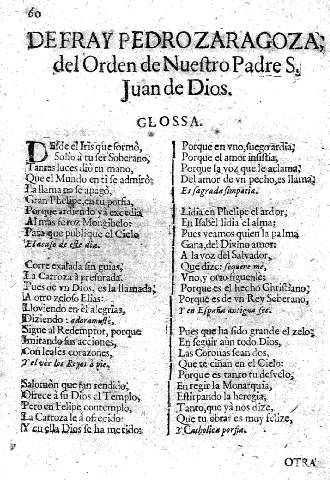 60
DE FRAY PEDRO ZARAGOZA,
del Orden de Nuestro Padre S.
Juan de Dios.
GLOSSA.
Desde el Iris que formò,
Solio à tu ser Soberano,
Tantas luces diò tu mano,
Que el Mundo en ti se admirò;
La llama no se apagò,
Gran Phelipe, en tu porfia,
Porque ardiendo ya excedia
Al mas feroz Mongibelo:
Para que publique el Cielo
El acaso de este dia.
Corre exalada sin guias,
La Carroza à
Pues de vn Dios, es la llamada,
A otro zeloso Elias:
Lloviendo en èl alegrias,
Diziendo:
Sigue al Redemptor, porque
Imitando sus acciones,
Con leales corazones,
Y el vèr los Reyes à pie.
Salomòn que tan rendido,
Ofrece à su Dios el Templo,
Pero en Felipe contemplo,
La Carroza le à ofrecido:
Y en ella Dios se ha metido:
Porque en vno, fuego ardia,
Porque el amor insistia,
Porque la voz que le aclama,
Del amor de vn pecho, es llama,
Es sagrada simpatia.
Lidia en Phelipe el ardor,
En Isabèl lidia el alma;
Pues veamos quien la palma
Gana, del Divino amor:
A la voz del Salvador,
Que dize: sequere mè,
Vno, y otro siguenle;
Porque es el hecho Christiano,
Porque es de vn Rey Soberano,
Y en España antigua fee.
Pues que ha sido grande el zelo,
En seguir aùn todo Dios,
Las Coronas sean dos,
Que te ciñan en el Cielo:
Porque es tanto tu desvelo,
En regir la Monarquia,
Estirpando la heregia;
Tanto, que yà nos dize,
Que tu obras es muy felize,
Y Catholica porfia.
OTRA